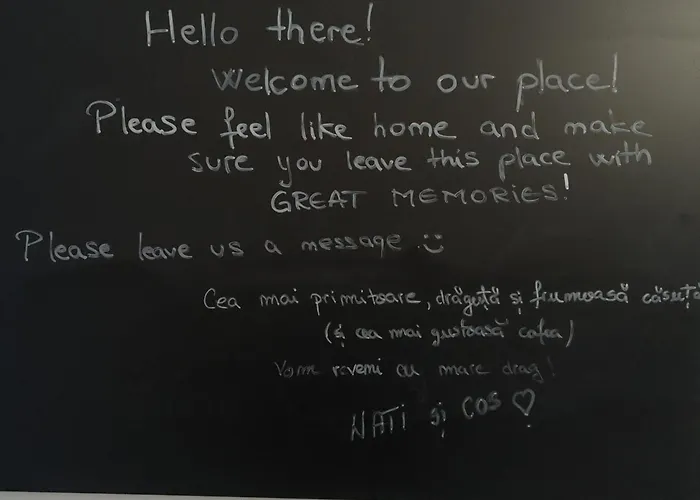 Hello there!
Welcome to our place!
Please feel like home and make
sure you leave this place with
GREAT MEMORIES!
Please leave us a message :)
Cea mai primitoare, drăguță și frumoasă căsuță
(și cea mai gustoasă cafea)
Vom reveni cu mare drag!
NATI și COS ♡